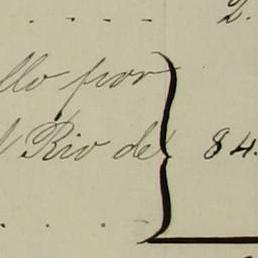 ..... 2.
llo por
l Rio de 84.